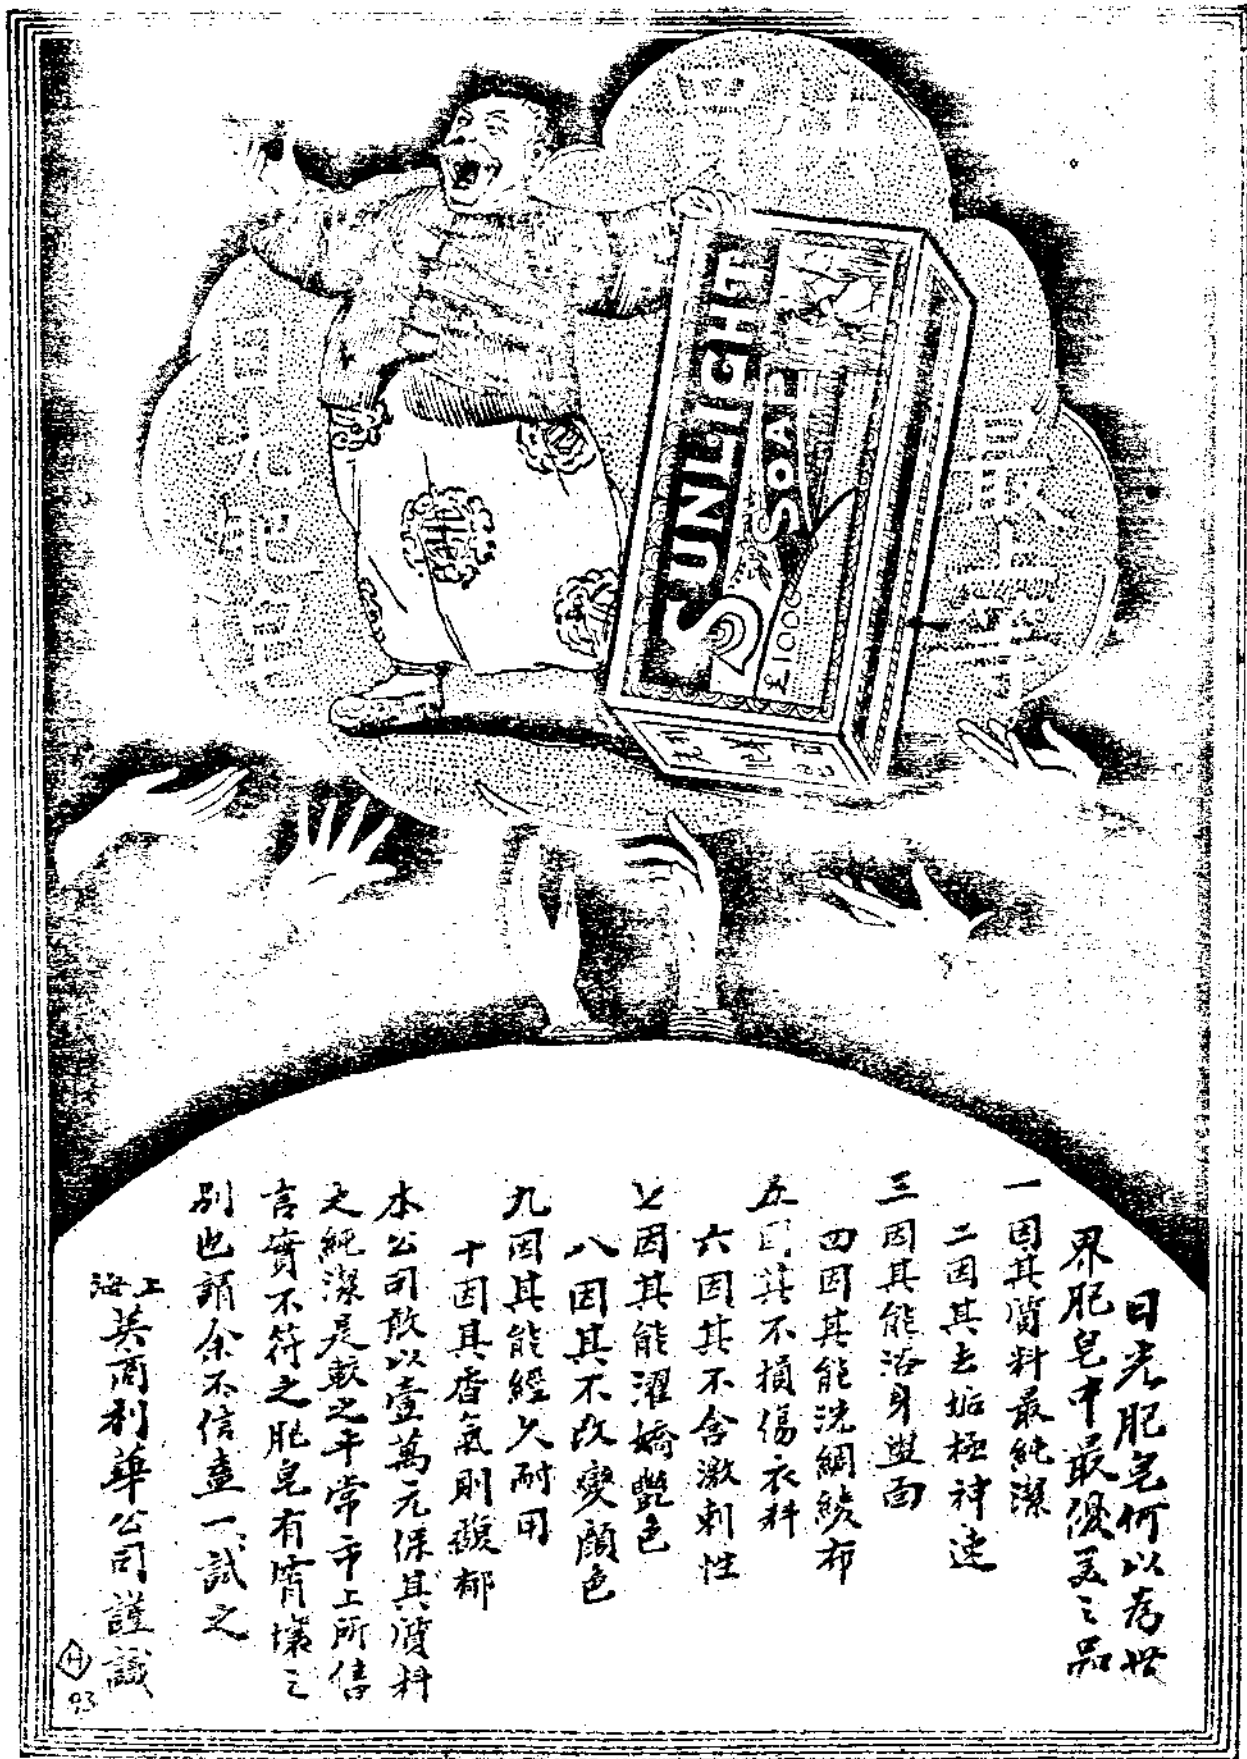 最上等
日光肥皂
SUNLIGHT
SOAP
£1000
日光肥皂何以為世
界肥皂中最優美之品
一因其質料最純潔
二因其去垢極神速
三因其能浴身與面
四因其能洗綢綾布
五因其不損傷衣料
六因其不含激刺性
七因其能濯嬌艷色
八因其不改變顏色
九因其能經久耐用
十因其香氣則馥郁
本公司敢以壹萬元保其質料
之純潔是較之平常市上所售
言實不符之肥皂有霄壤之
別也請余不信盍一試之
上海英商利華公司謹識
H
93